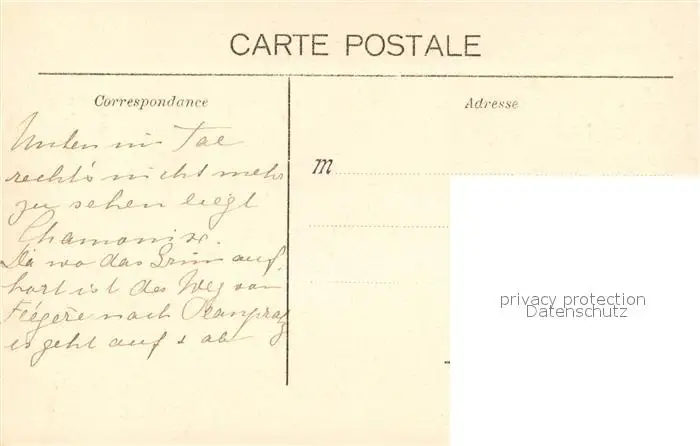 CARTE POSTALE
Correspondance
Adresse
Unten im Tal
rechts nicht mehr
zu sehen liegt
Chamonix.
Da wo das Grün auf-
hört ist der Weg von
Flégère nach Planpraz
es geht auf & ab
M
privacy protection
Datenschutz